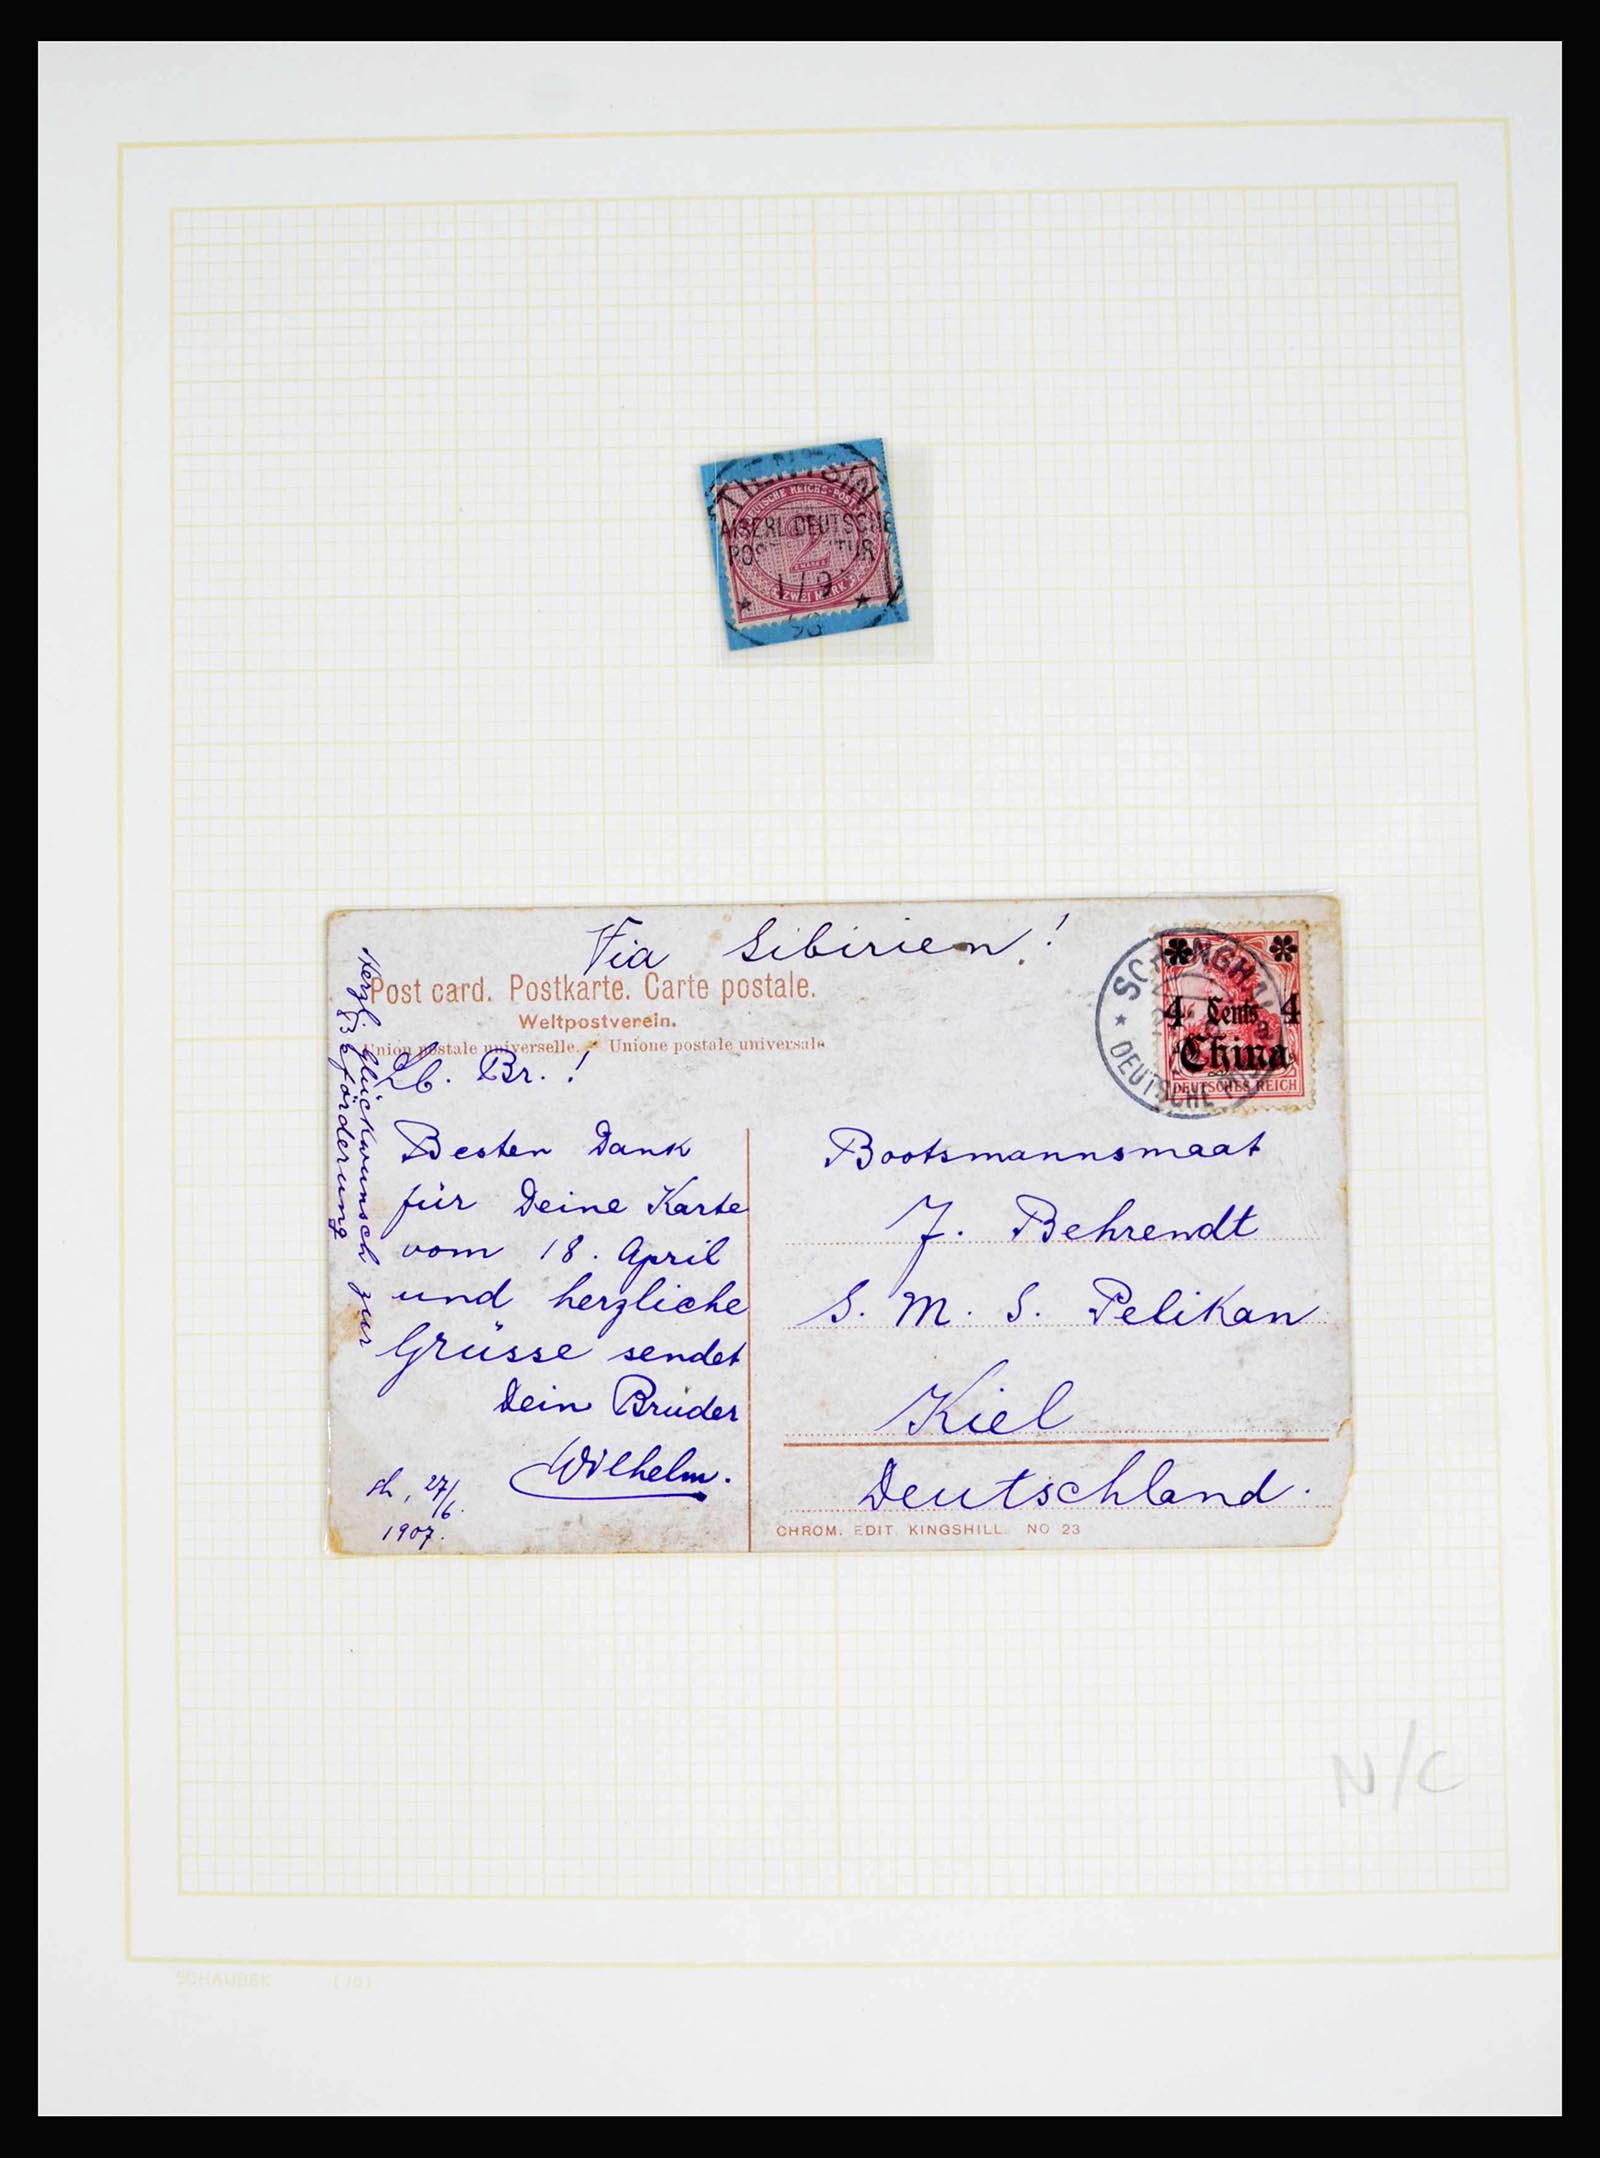 TIENTSIN
DEUTSCHE REICHS-POST
AISERL DEUTSCHE
2
MARK
ZWEI MARK
1/9
98
Via Sibirien!
Post card. Postkarte. Carte postale.
Weltpostverein.
Union postale universelle. - Unione postale universale
SCHANGHAI
* DEUTSCHE
4 Cents 4
China
DEUTSCHES REICH
Herzl. Glückwunsch zur
Beförderung
Lb. Br.!
Besten Dank
für Deine Karte
vom 18. April
und herzliche
Grüsse sendet
Dein Bruder
Wilhelm.
Sh, 27/6.
1907.
Bootsmannsmaat
J. Behrendt
S. M. S. Pelikan
Kiel
Deutschland.
CHROM. EDIT. KINGSHILL. NO 23
N/C
SCHAUBEK (70)